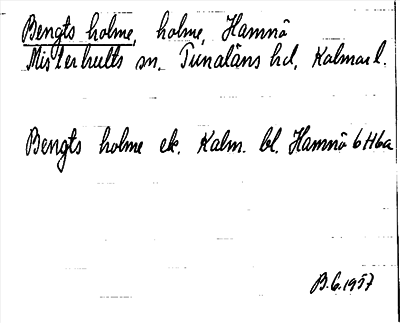 Bengts holme, holme, Hamnö
Misterhults sn, Tunaläns hd, Kalmar l.
Bengts holme ek. Kalm. bl. Hamnö 6 H 6a
B.G. 1957